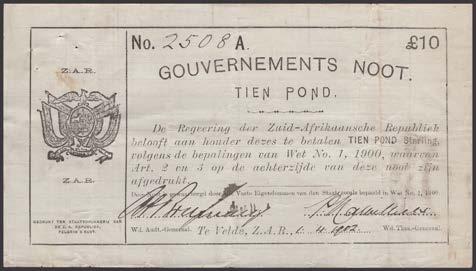 No. 2508 A. £10
GOUVERNEMENTS NOOT.
TIEN POND.
Z. A. R.
De Regeering der Zuid-Afrikaansche Republiek
belooft aan houder dezes te betalen TIEN POND Sterling,
volgens de bepalingen van Wet No. 1, 1900, waarvan
Art. 2 en 5 op de achterzijde van deze noot zijn
afgedrukt.
Vaste Eigendommen van den Staat bepaald in Wet No. 1, 1900
Z. A. R.
GEDRUKT TER STAATSDRUKKERIJ VAN
DE Z. A. REPUBLIEK,
PELGRIM'S RUST.
Wd. Audt.-Generaal. Te Velde, Z.A.R., 1. 4 1902. Wd. Thes.-Generaal.